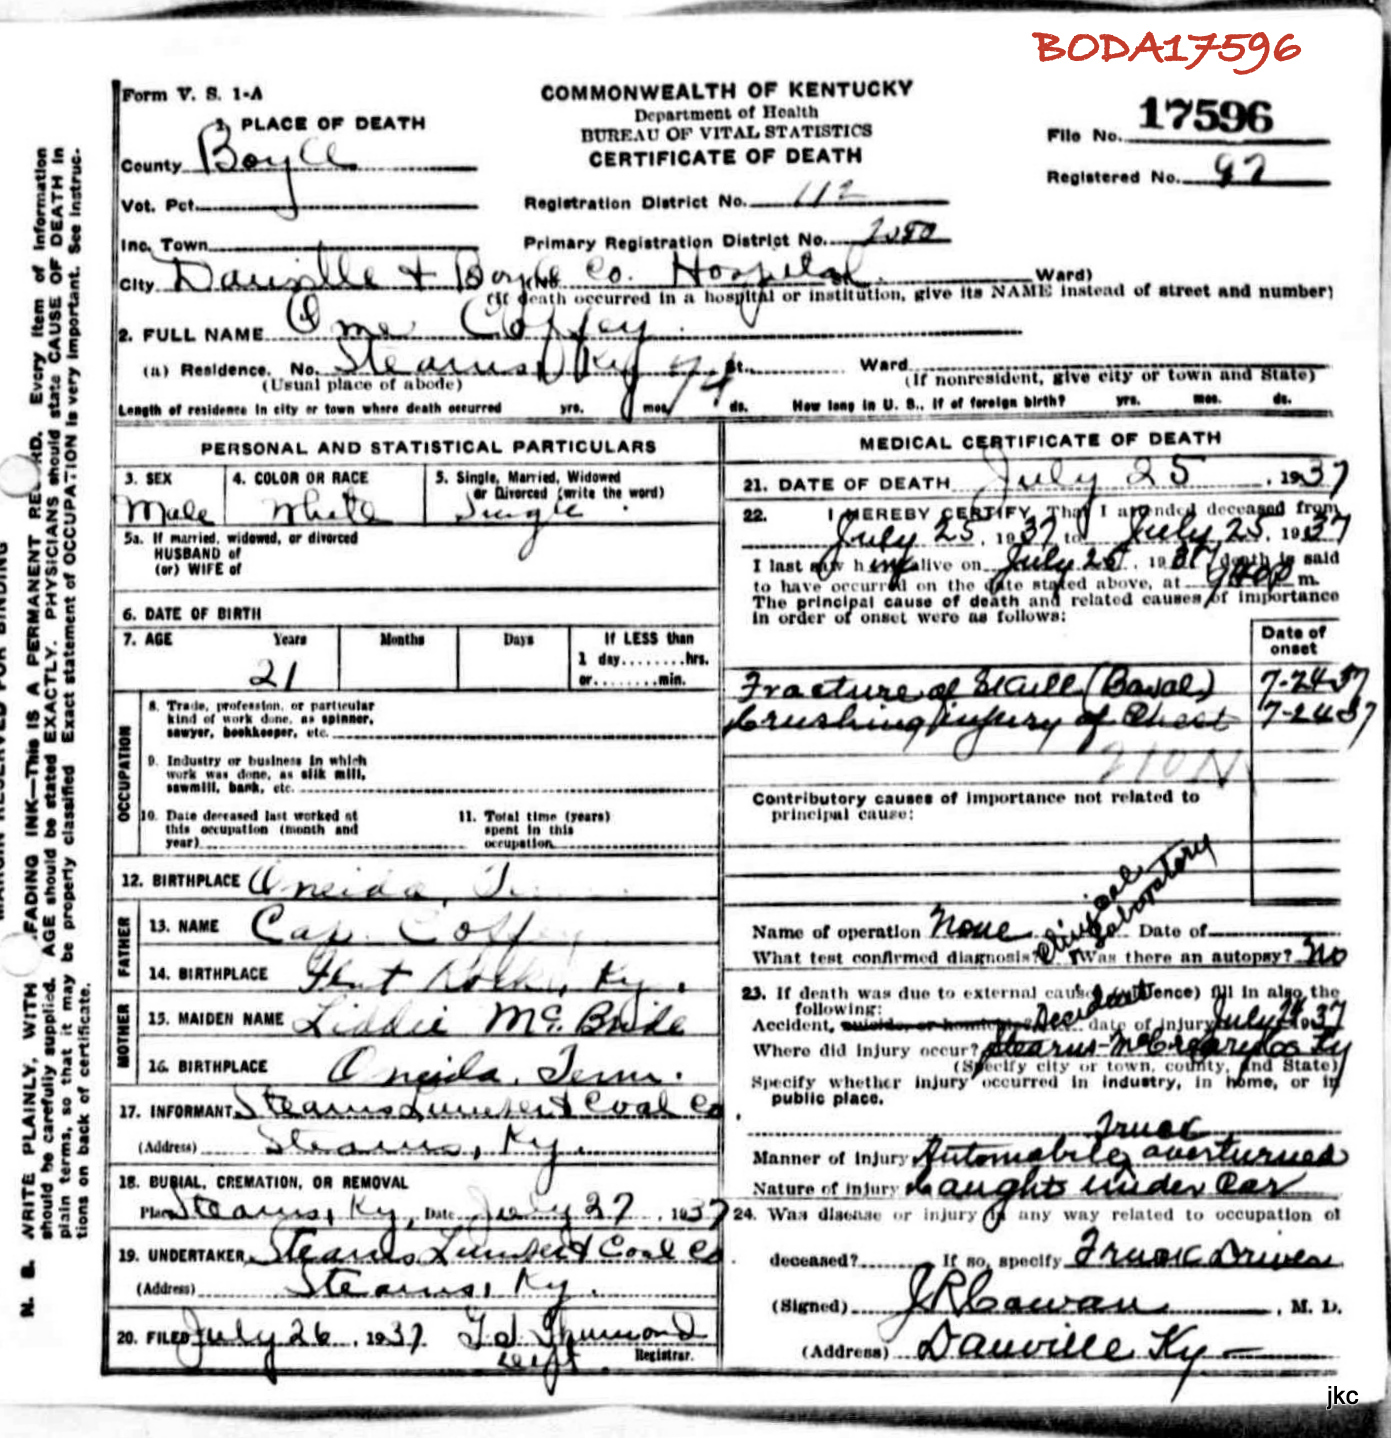 BODA17596
Form V. S. 1-A
COMMONWEALTH OF KENTUCKY
Department of Health
BUREAU OF VITAL STATISTICS
CERTIFICATE OF DEATH
File No. 17596
Registered No. 97
1. PLACE OF DEATH
County Boyle
Vot. Pct.
Registration District No. 112
Inc. Town
Primary Registration District No.
City Danville & Boyle Co. Hospital Ward)
(If death occurred in a hospital or institution, give its NAME instead of street and number)
2. FULL NAME Coffey
(a) Residence. No. Stearns, Ky St. Ward
(Usual place of abode) (If nonresident, give city or town and State)
Length of residence in city or town where death occurred yrs. mos. ds. How long in U. S., if of foreign birth? yrs. mos. ds.
PERSONAL AND STATISTICAL PARTICULARS
3. SEX Male
4. COLOR OR RACE White
5. Single, Married, Widowed
or Divorced (write the word)
Single
5a. If married, widowed, or divorced
HUSBAND of
(or) WIFE of
6. DATE OF BIRTH
7. AGE Years Months Days If LESS than
1 day........hrs.
or........min.
21
OCCUPATION
8. Trade, profession, or particular
kind of work done, as spinner,
sawyer, bookkeeper, etc.
9. Industry or business in which
work was done, as silk mill,
sawmill, bank, etc.
10. Date deceased last worked at
this occupation (month and
year)
11. Total time (years)
spent in this
occupation
12. BIRTHPLACE Oneida,
FATHER
13. NAME Cap Coffey
14. BIRTHPLACE Ky.
MOTHER
15. MAIDEN NAME Liddie McBride
16. BIRTHPLACE Oneida, Tenn.
17. INFORMANT Stearns Lumber & Coal Co
(Address) Stearns, Ky.
18. BURIAL, CREMATION, OR REMOVAL
Place Stearns, Ky, Date July 27, 1937
19. UNDERTAKER Stearns Lumber & Coal Co
(Address) Stearns, Ky.
20. FILED July 26, 1937
Registrar.
MEDICAL CERTIFICATE OF DEATH
21. DATE OF DEATH July 25, 1937
22. I HEREBY CERTIFY, That I attended deceased from
July 25, 1937 to July 25, 1937
I last saw him alive on July 25, 1937, death is said
to have occurred on the date stated above, at m.
The principal cause of death and related causes of importance
in order of onset were as follows:
Date of
onset
Fracture of Skull (Basal) 7-24-37
Crushing injury of Chest 7-24-37
Contributory causes of importance not related to
principal cause:
Name of operation None Date of
What test confirmed diagnosis? Clinical & Laboratory Was there an autopsy? No
23. If death was due to external causes (violence) fill in also the
following:
Accident, suicide, or homicide? Accident date of injury July 24 1937
Where did injury occur? Stearns-McCreary Co Ky
(Specify city or town, county, and State)
Specify whether injury occurred in industry, in home, or in
public place.
Truck
Manner of injury Automobile overturned
Nature of injury Caught under Car
24. Was disease or injury in any way related to occupation of
deceased? If so, specify Truck Driver
(Signed) J R Cowan, M. D.
(Address) Danville Ky
N. B. WRITE PLAINLY, WITH FADING INK—THIS IS A PERMANENT RECORD. Every item of information
should be carefully supplied. AGE should be stated EXACTLY. PHYSICIANS should state CAUSE OF DEATH in
plain terms, so that it may be properly classified. Exact statement of OCCUPATION is very important. See instruc-
tions on back of certificate.
jkc